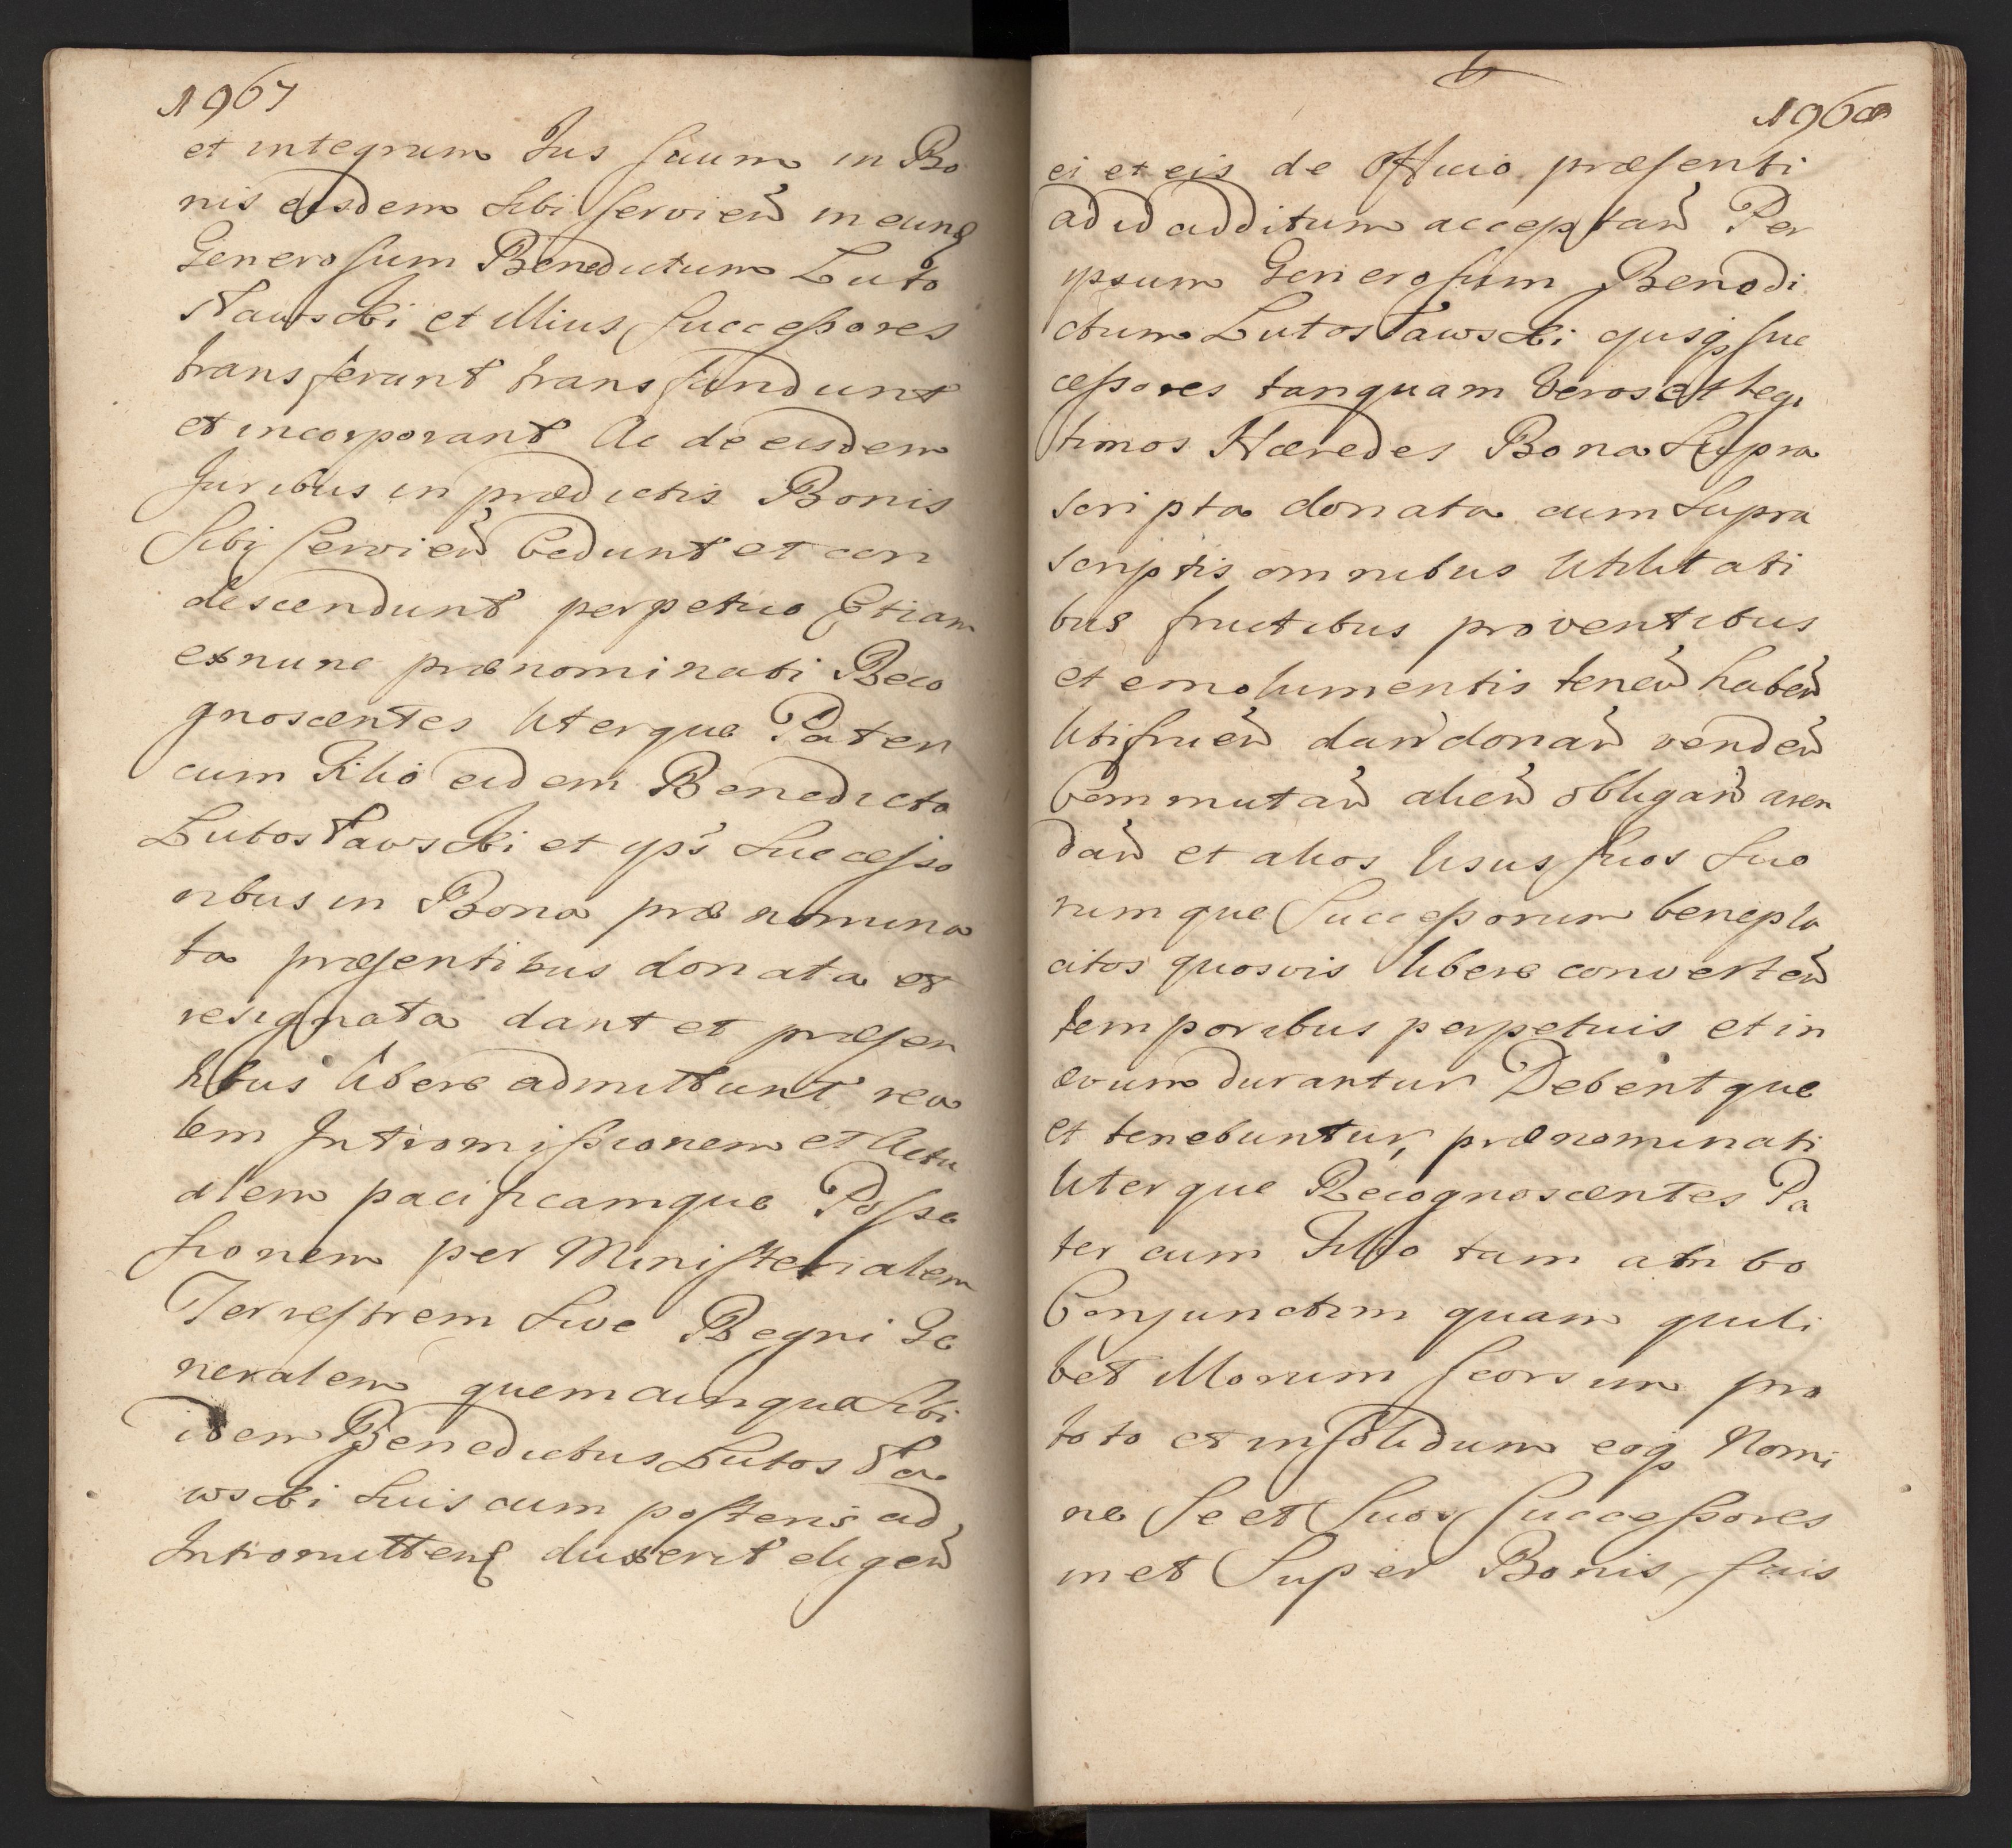 1967
et integrum Jus suum in Bo
nis eisdem sibi servien̄ in eund
Generosum Benedictum Luto
sławski et illius successores
transferunt transfundunt
et incorporant Ac de eisdem
Juribus in prædictis Bonis
sibi servien̄ Cedunt et con
descendunt perpetuo Etiam
exnunc prænominati Reco
gnoscentes Uterque Pater
cum Filio eidem Benedicto
Lutosławski et yps̄ Successo
ribus in Bona prænomina
ta præsentibus donata et
resignata dant et præsen
tibus libere admittunt rea
lem Intromissionem et Actu
alem pacificamque Posse
ssionem per Ministerialem
Terrestrem Sive Regni Ge
neralem quemcunque Sibi
idem Benedictus Lutosła
wski Suis cum posteris ad
Intromittend duxerit eligen̄
1968
ei et eis de Officio præsenti
ad id additum acceptan̄ Per
ypsum Generosum Benedi
ctum Lutosławski ejusq suc
cessores tanquam Veros et Legi
timos Hæredes Bona Supra
scripta donata cum Supra
scriptis omnibus Utilitati
bus fructibus proventibus
et emolumentis tenen̄ haben̄
Utifruen̄ dan̄ donan̄ venden̄
Commutan̄ alien̄ obligan̄ aren
dan̄ et alios Usus suos Suo
rumque Successorum benepla
citos quosvis libere converten̄
temporibus perpetuis et in
ævum duraturis Debentque
et tenebuntur, prænominati
Uterque Recognoscentes Pa
ter cum Filio tam ambo
Conjunctim quam quili
bet Illorum seorsim pro
toto et insolidum eoq Nomi
ne Se et Suos Successores
met Super Bonis suis